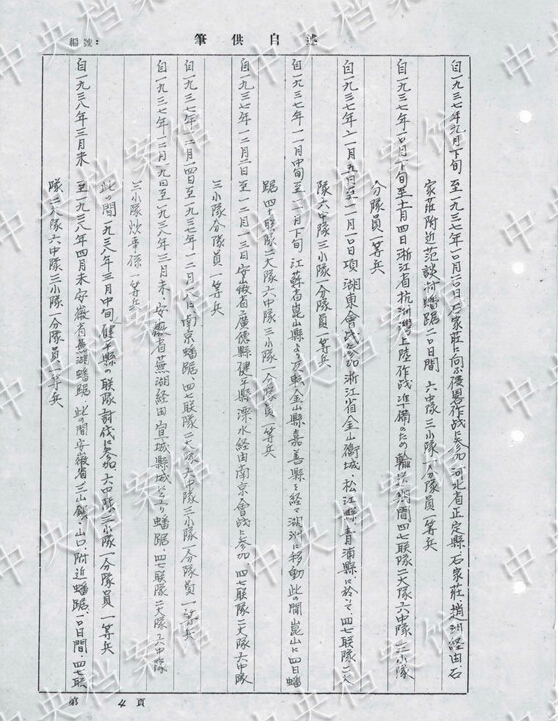 編號：
筆供自述
自一九三七年九月下旬 至一九三七年一〇月二〇日 石家莊に向ふ侵略作戰に参加 河北省正定縣 石家莊 趙州 経由石
家莊附近范談村蟠踞二〇日間 六中隊三小隊一分隊員一等兵
自一九三七年一〇月下旬至十一月四日浙江省杭州湾上陸作战準備のため輸 期間四七联隊二大隊六中隊三小隊
分隊員一等兵
自一九三七年一一月五日至一一月一〇日項 湖東會战に参加浙江省金山衛城、松江縣青浦縣に於いて四七联隊二大
隊六中隊三小隊一分隊員一等兵
自一九三七年一一月中旬至一一月下旬 江蘇省崑山縣より 金山縣嘉善縣を経て湖州に移動此の間崑山に四日蟠
踞四七联隊二大隊六中隊三小隊一分隊員一等兵
自一九三七年一二月三日至一二月一三日安徽省廣德縣 健平縣 溧水経由南京會战に参加 四七联隊二大隊六中隊
三小隊分隊員一等兵
自一九三七年一二月一四日至一九三七年一二月一八日南京蟠踞 四七联隊二大隊六中隊三小隊一分隊員一等兵
自一九三七年一二月一九日至一九三八年三月末 安徽省蕪湖経由 宣城縣城 蟠踞 四七联隊二大隊六中隊
三小隊炊事係一等兵
此の間一九三八年三月中旬健平縣の联隊討伐に参加六四隊三小隊一分隊員一等兵
自一九三八年三月末 至一九三八年四月末安徽省蕪湖蟠踞 此の間安徽省三山鎮、山口附近蟠踞一〇日間、四七联
隊二大隊六中隊三小隊一分隊員一等兵
第 4 頁
中央档案馆